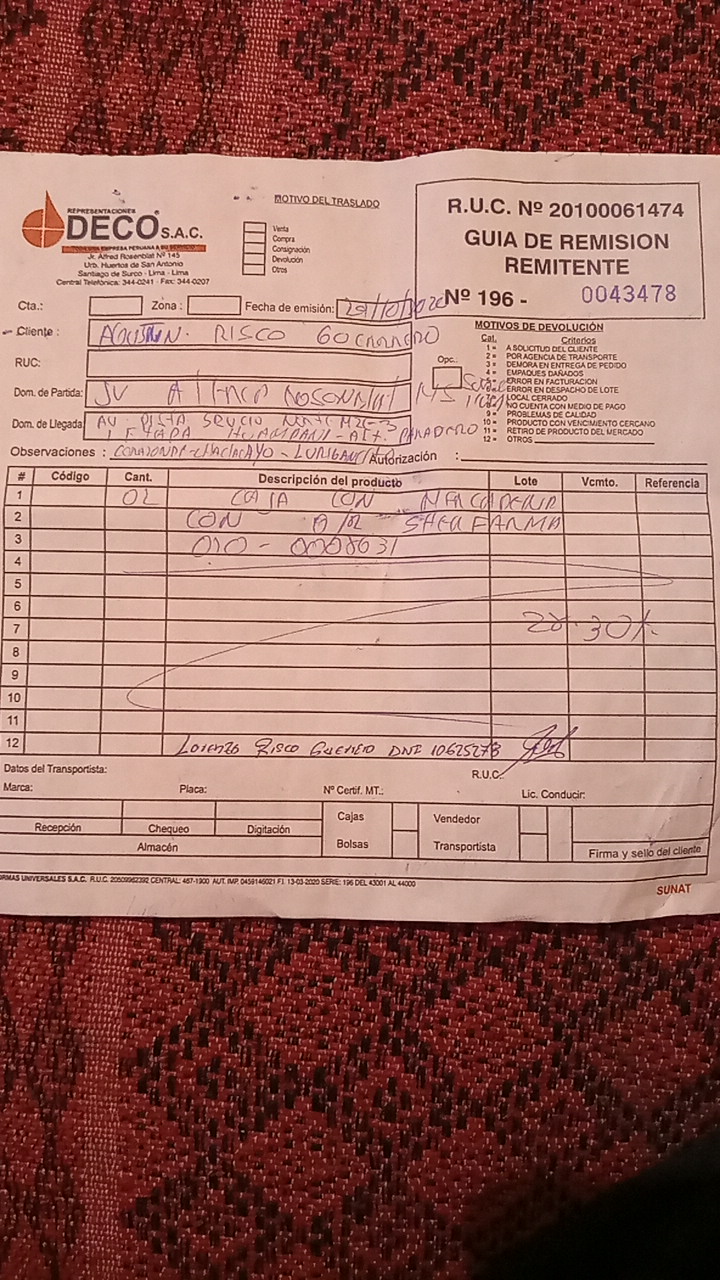 REPRESENTACIONES
DECO S.A.C.
Jr. Alfred Rosenblat Nº 145
Urb. Huertos de San Antonio
Santiago de Surco - Lima - Lima
Central Telefónica: 344-0241 - Fax: 344-0207
MOTIVO DEL TRASLADO
Venta
Compra
Consignación
Devolución
Otros
R.U.C. Nº 20100061474
GUIA DE REMISION
REMITENTE
Nº 196 - 0043478
Cta.: Zona : Fecha de emisión: 29/10/2020
Cliente : RISCO
RUC:
Dom. de Partida:
Dom. de Llegada:
Observaciones : Autorización :
MOTIVOS DE DEVOLUCIÓN
Cat. Criterios
1 = A SOLICITUD DEL CLIENTE
2 = POR AGENCIA DE TRANSPORTE
3 = DEMORA EN ENTREGA DE PEDIDO
4 = EMPAQUES DAÑADOS
ERROR EN FACTURACION
ERROR EN DESPACHO DE LOTE
LOCAL CERRADO
NO CUENTA CON MEDIO DE PAGO
9 = PROBLEMAS DE CALIDAD
10 = PRODUCTO CON VENCIMIENTO CERCANO
11 = RETIRO DE PRODUCTO DEL MERCADO
12 = OTROS
Opc.:
# Código Cant. Descripción del producto Lote Vcmto. Referencia
1 02 CAJA CON MERCADERIA
2 CON
3 010 - 0008631
4
5
6
7 28.30K.
8
9
10
11
12 Lorenzo Risco Guerrero DNI 10625278
Datos del Transportista: R.U.C.:
Marca: Placa: Nº Certif. MT.: Lic. Conducir:
Recepción Chequeo Digitación
Almacén
Cajas
Bolsas
Vendedor
Transportista
Firma y sello del cliente
FORMAS UNIVERSALES S.A.C. R.U.C. 20509962392 CENTRAL: 467-1900 AUT. IMP. 0459146021 F.I. 13-03-2020 SERIE: 196 DEL 43001 AL 44000
SUNAT